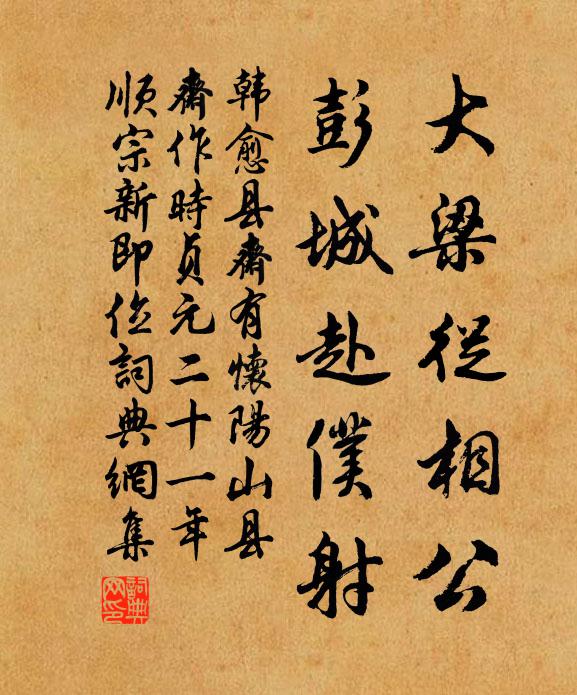 大梁從相公
彭城赴僕射
韩愈县齋有懷陽山县
齋作時貞元二十一年
順宗新即位詞典網集
詞典网印